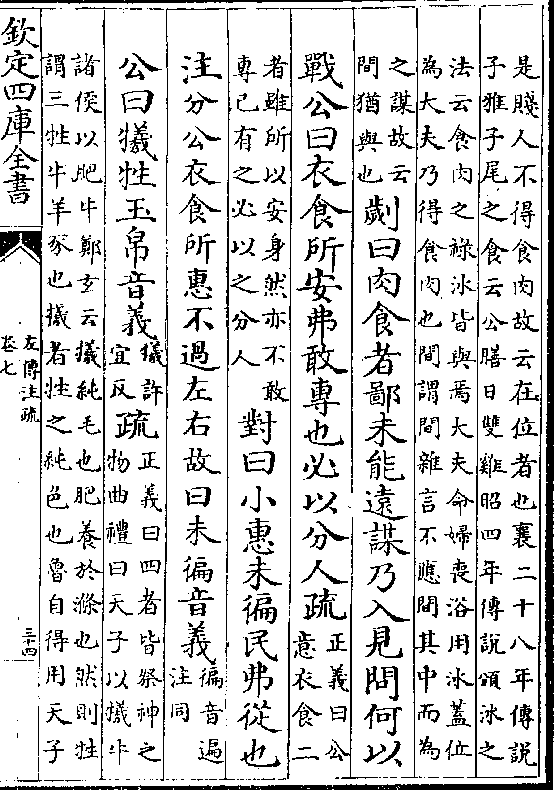 是賤人不得食肉故云在位者也襄二十八年傳說
子雅子尾之食云公膳日雙雞昭四年傳說頒冰之
法云食肉之祿冰皆與焉大夫命婦喪浴用冰蓋位
為大夫乃得食肉也間謂間雜言不應間其中而為
之謀故云
間猶與也
劌曰肉食者鄙未能遠謀乃入見問何以
戰公曰衣食所安弗敢專也必以分人疏
正義曰公
意衣食二
者雖所以安身然亦不敢
專己有之必以之分人
對曰小惠未徧民弗從也
注分公衣食所惠不過左右故曰未徧音義
徧音遍
注同
公曰犧牲玉帛音義
犧許
宜反
疏
正義曰四者皆祭神之
物曲禮曰天子以犧牛
諸侯以肥牛鄭玄云犧純毛也肥養於滌也然則牲
謂三牲牛羊豕也犧者牲之純色也魯自得用天子
欽定四庫全書
左傳注疏
卷七
三十四